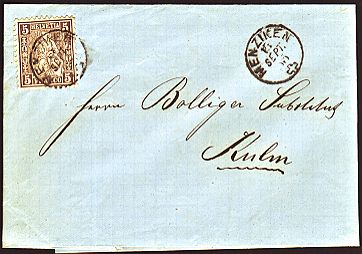 5 HELVETIA 5
MENZIKEN
SEPT.
Herrn Bolliger Substitut
Kulm